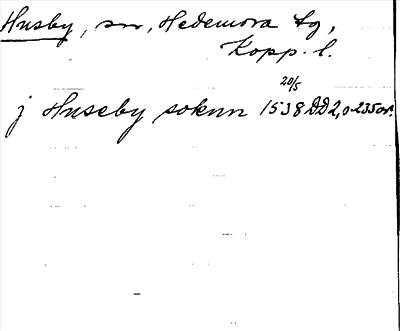 Husby, sn, Hedemora tg,
Kopp. l.
20/5
j Huseby soknn 1538 DD2, 0.235 or.